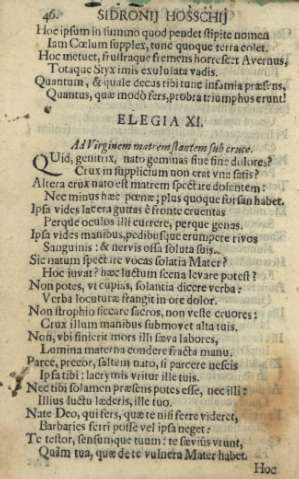 46. SIDRONII HOSSCHII
Hoc ipsum in summo quod pendet stipite nomen
Iam Cœlum supplex, tunc quoque terra colet.
Hoc metuet, frustraque fremens horrescet Avernus,
Totaque Styx imis exululata vadis.
Quantum, & quale decus tibi tunc infamia præsens,
Quantus, quæ modò fers, probra triumphus erunt!
ELEGIA XI.
Ad Virginem matrem stantem sub cruce.
QUid, genitrix, nato geminas sine fine dolores?
Crux in supplicium non erat vna satis?
Altera crux nato est matrem spectare dolentem:
Nec minus hæc pœnæ; plus quoque forsan habet.
Ipsa vides lacera guttas è fronte cruentas
Perque oculos illi currere, perque genas.
Ipsa vides manibus, pedibusque erumpere rivos
Sanguinis: & nervis ossa soluta suis.
Sic natum spectare vocas solatia Mater?
Hoc juvat? hæc luctum scena levare potest?
Non potes, vt cupias, solantia dicere verba:
Verba locuturæ frangit in ore dolor.
Non strophio siccare sacros, non veste cruores:
Crux illum manibus submovet alta tuis.
Non, vbi finierit mors illi sæva labores,
Lumina materna condere fracta manu.
Parce, precor, saltem nato, si parcere nescis
Ipsa tibi: lacrymis vritur ille tuis.
Nec tibi solamen præsens potes esse, nec illi:
Illius luctu læderis, ille tuo.
Nate Deo, qui fers, quæ te nisi ferre videret,
Barbaries ferri posse vel ipsa neget:
Te testor, sensumque tuum: te sævius vrunt,
Quàm tua, quæ de te vulnera Mater habet.
Hoc